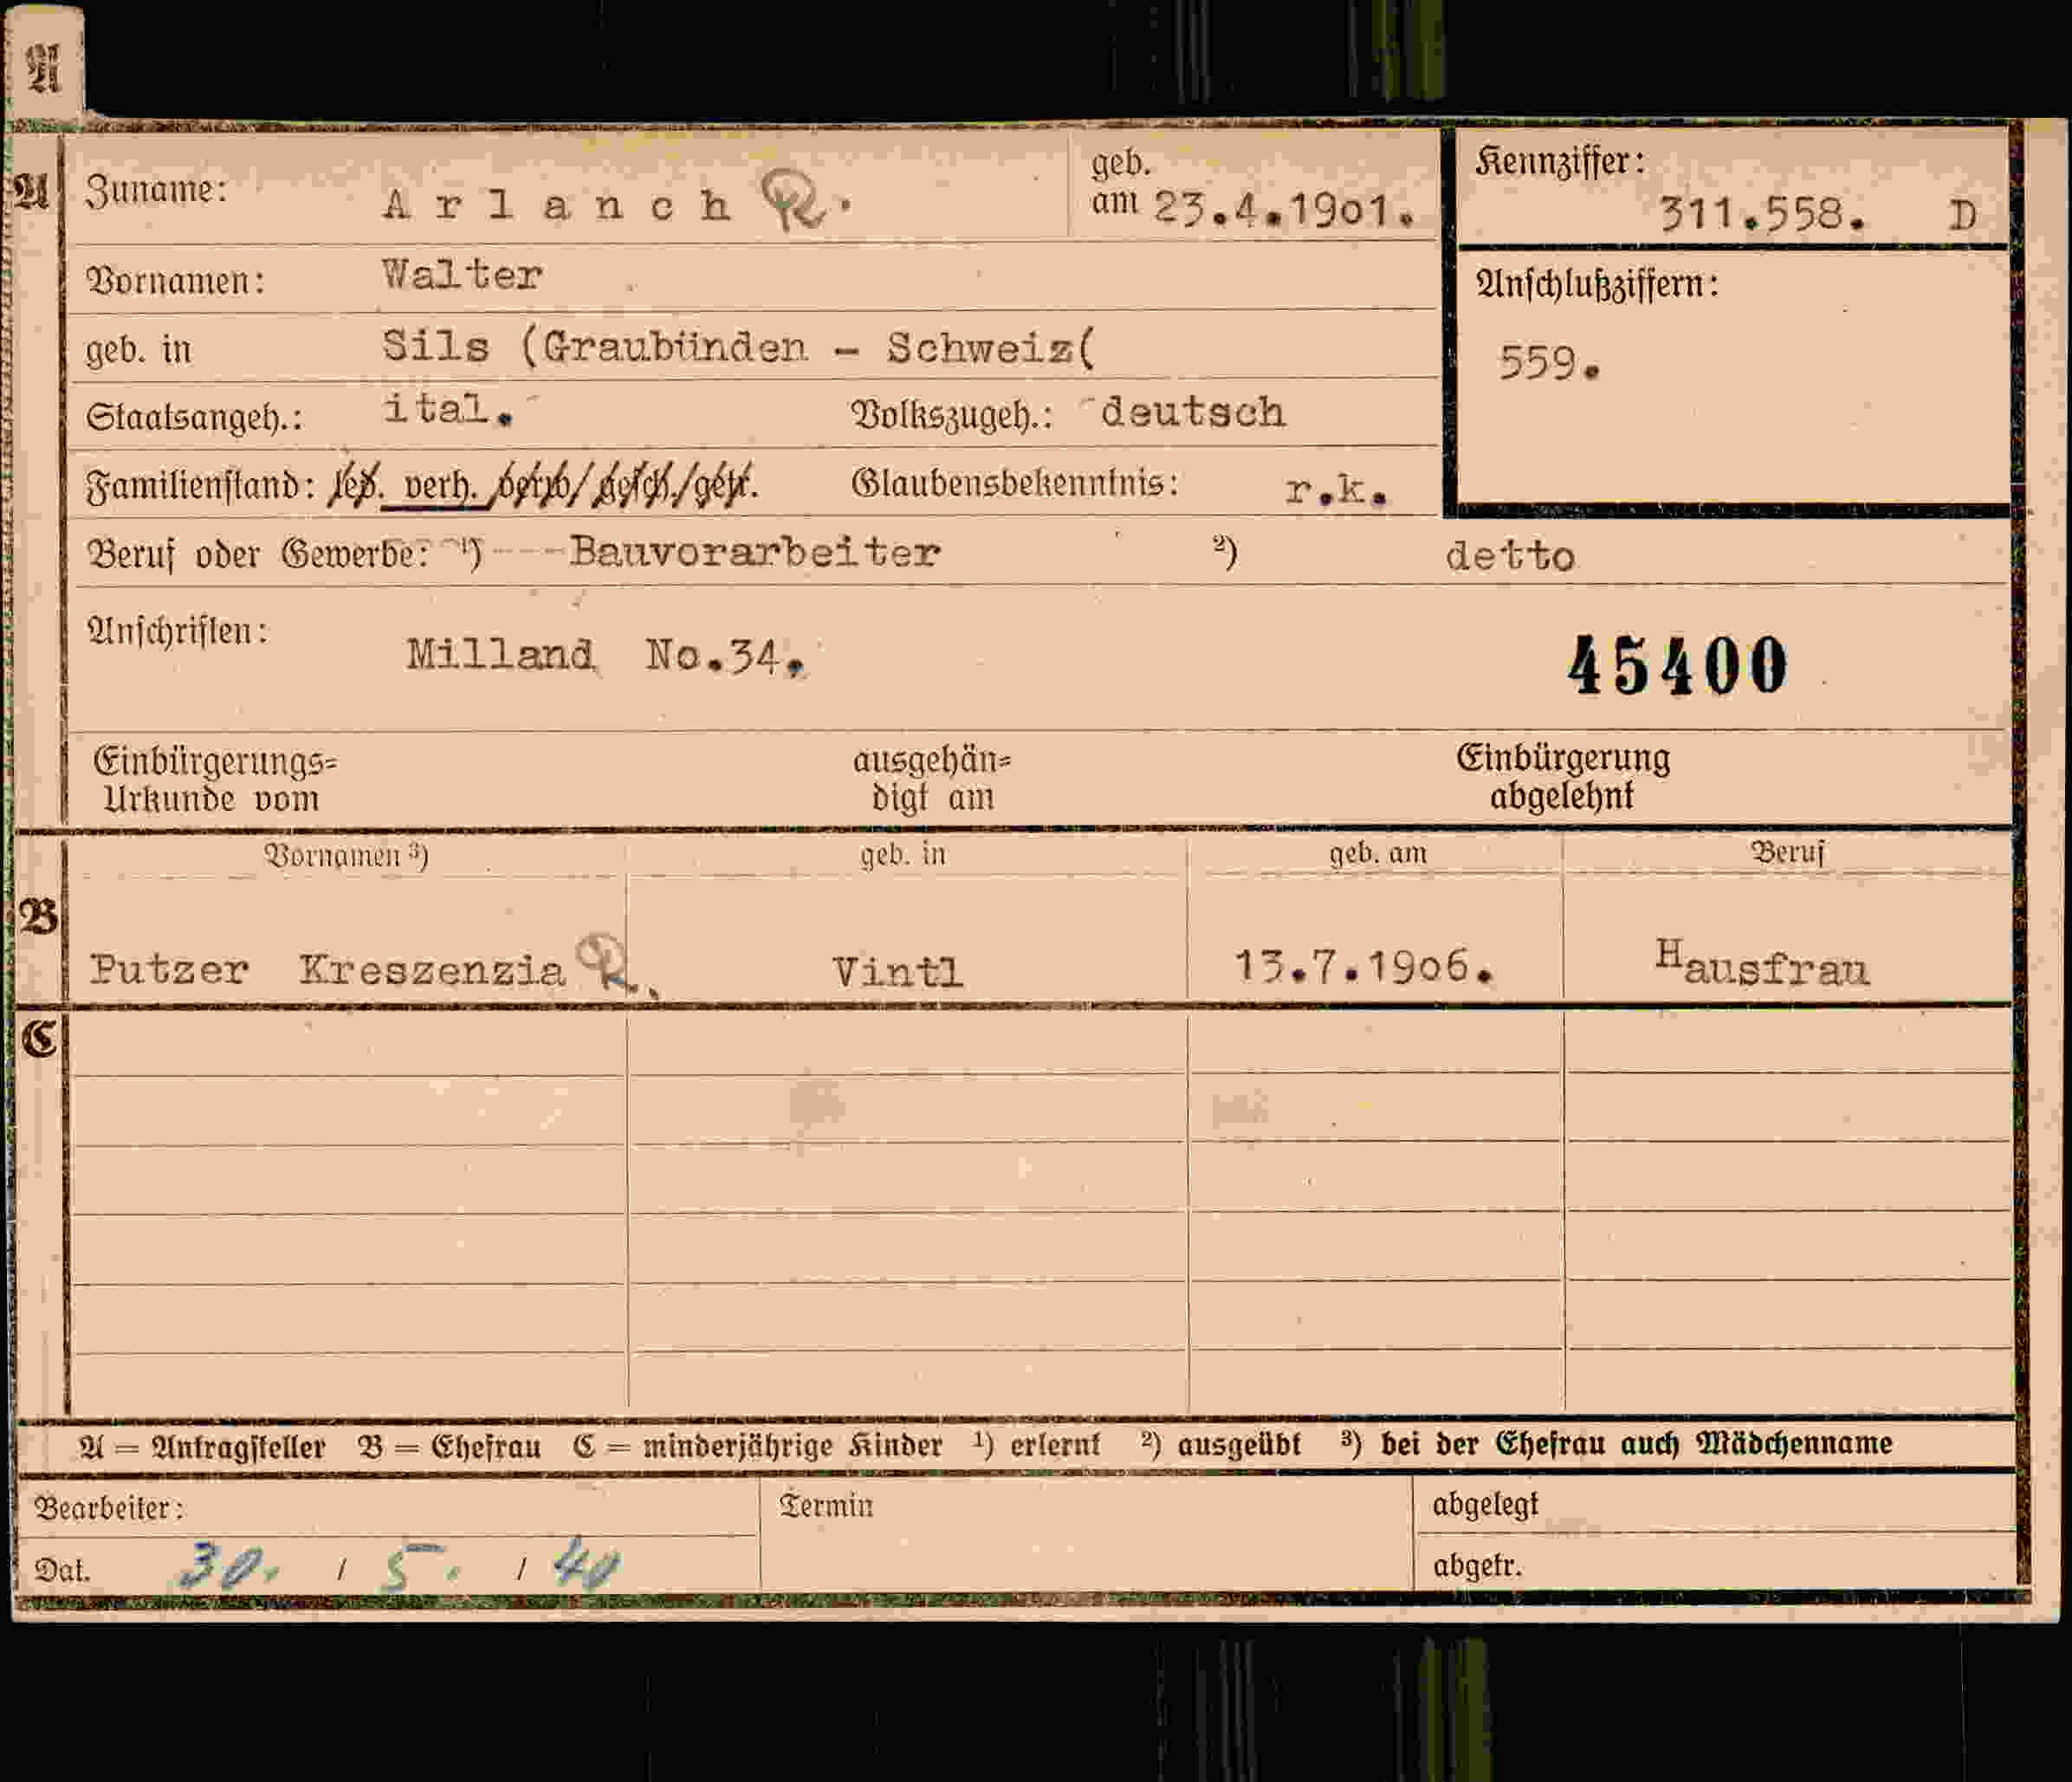 A
A Zuname: Arlanch R. geb. am 23.4.1901. Kennziffer: 311.558. D
Vornamen: Walter Anschlußziffern:
geb. in Sils (Graubünden - Schweiz( 559.
Staatsangeh.: ital. Volkszugeh.: deutsch
Familienstand: led. verh. verw./gesch./getr. Glaubensbekenntnis: r.k.
Beruf oder Gewerbe: ¹) ----Bauvorarbeiter ²) detto
Anschriften: Milland No.34. 45400
Einbürgerungs= ausgehän= Einbürgerung
Urkunde vom digt am abgelehnt
Vornamen ³) geb. in geb. am Beruf
B Putzer Kreszenzia R. Vintl 13.7.1906. Hausfrau
C
A = Antragsteller B = Ehefrau C = minderjährige Kinder ¹) erlernt ²) ausgeübt ³) bei der Ehefrau auch Mädchenname
Bearbeiter: Termin abgelegt
Dat. 30. / 5. / 40 abgetr.